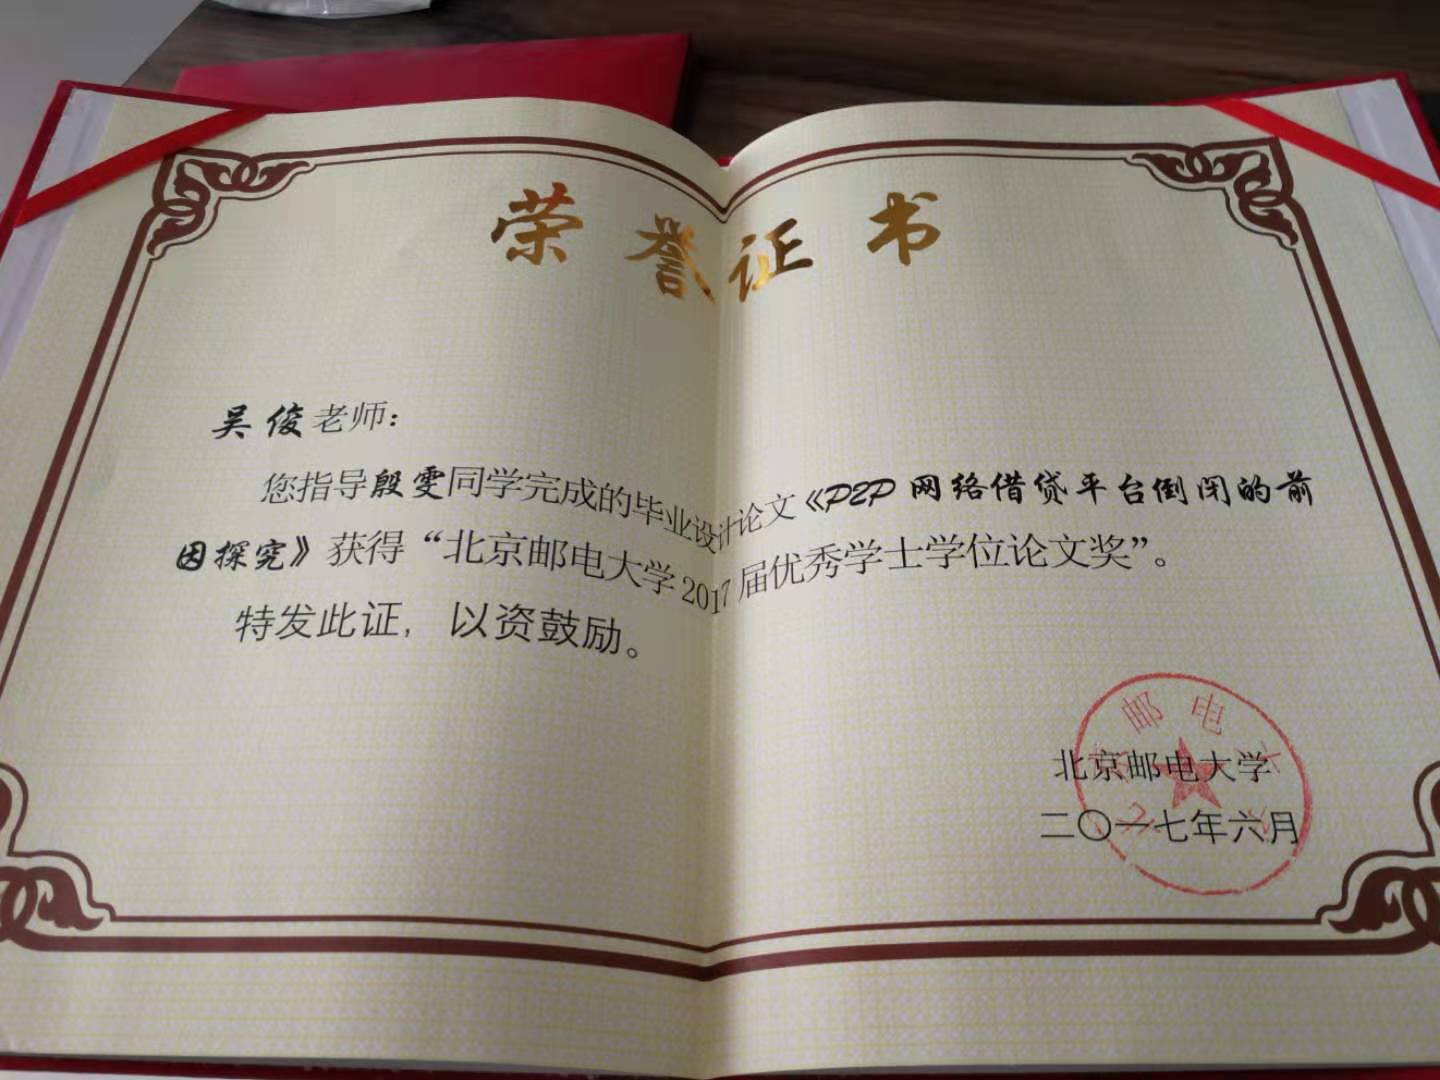 荣誉证书
吴俊老师：
您指导殷雯同学完成的毕业设计论文《P2P网络借贷平台倒闭的前
因探究》获得“北京邮电大学2017届优秀学士学位论文奖”。
特发此证，以资鼓励。
北京邮电大学
二〇一七年六月